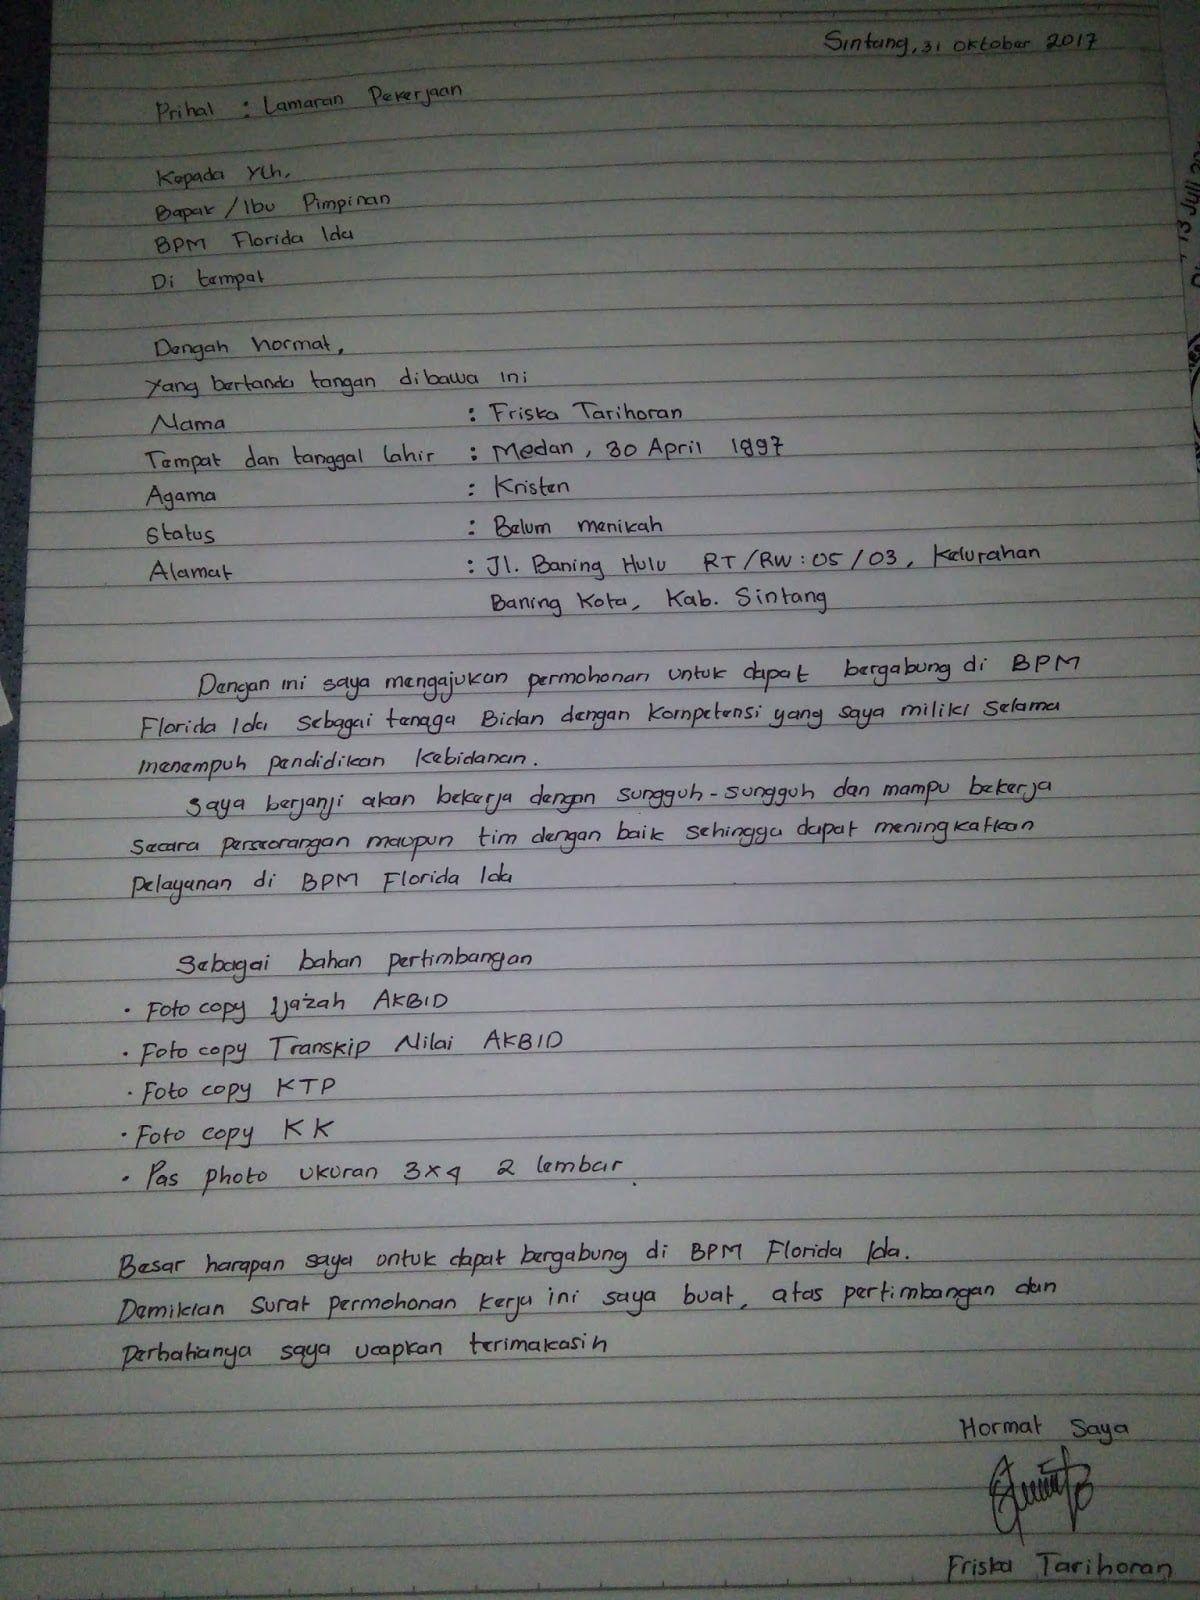 Sintang, 31 Oktober 2017
Prihal : Lamaran Pekerjaan
Kepada Yth,
Bapak /Ibu Pimpinan
BPM Florida Ida
Di tempat
Dengah hormat,
Yang bertanda tangan dibawa ini
Nama : Friska Tarihoran
Tempat dan tanggal lahir : Medan, 30 April 1997
Agama : Kristen
Status : Belum menikah
Alamat : Jl. Baning Hulu RT/RW : 05/03, Kelurahan
Baning Kota, Kab. Sintang
Dengan ini saya mengajukan permohonan untuk dapat bergabung di BPM
Florida Ida sebagai tenaga Bidan dengan kompetensi yang saya miliki selama
menempuh pendidikan kebidanan.
Saya berjanji akan bekerja dengan sungguh-sungguh dan mampu bekerja
secara perseorangan maupun tim dengan baik sehingga dapat meningkatkan
pelayanan di BPM Florida Ida
Sebagai bahan pertimbangan
• Foto copy Ijazah AKBID
• Foto copy Transkip Nilai AKBID
• Foto copy KTP
• Foto copy KK
• Pas photo ukuran 3x4 2 lembar.
Besar harapan saya ontuk dapat bergabung di BPM Florida Ida.
Demikian surat permohonan kerja ini saya buat, atas pertimbangan dan
perhatianya saya ucapkan terimakasih
Hormat Saya
Friska Tarihoran
13 Juli